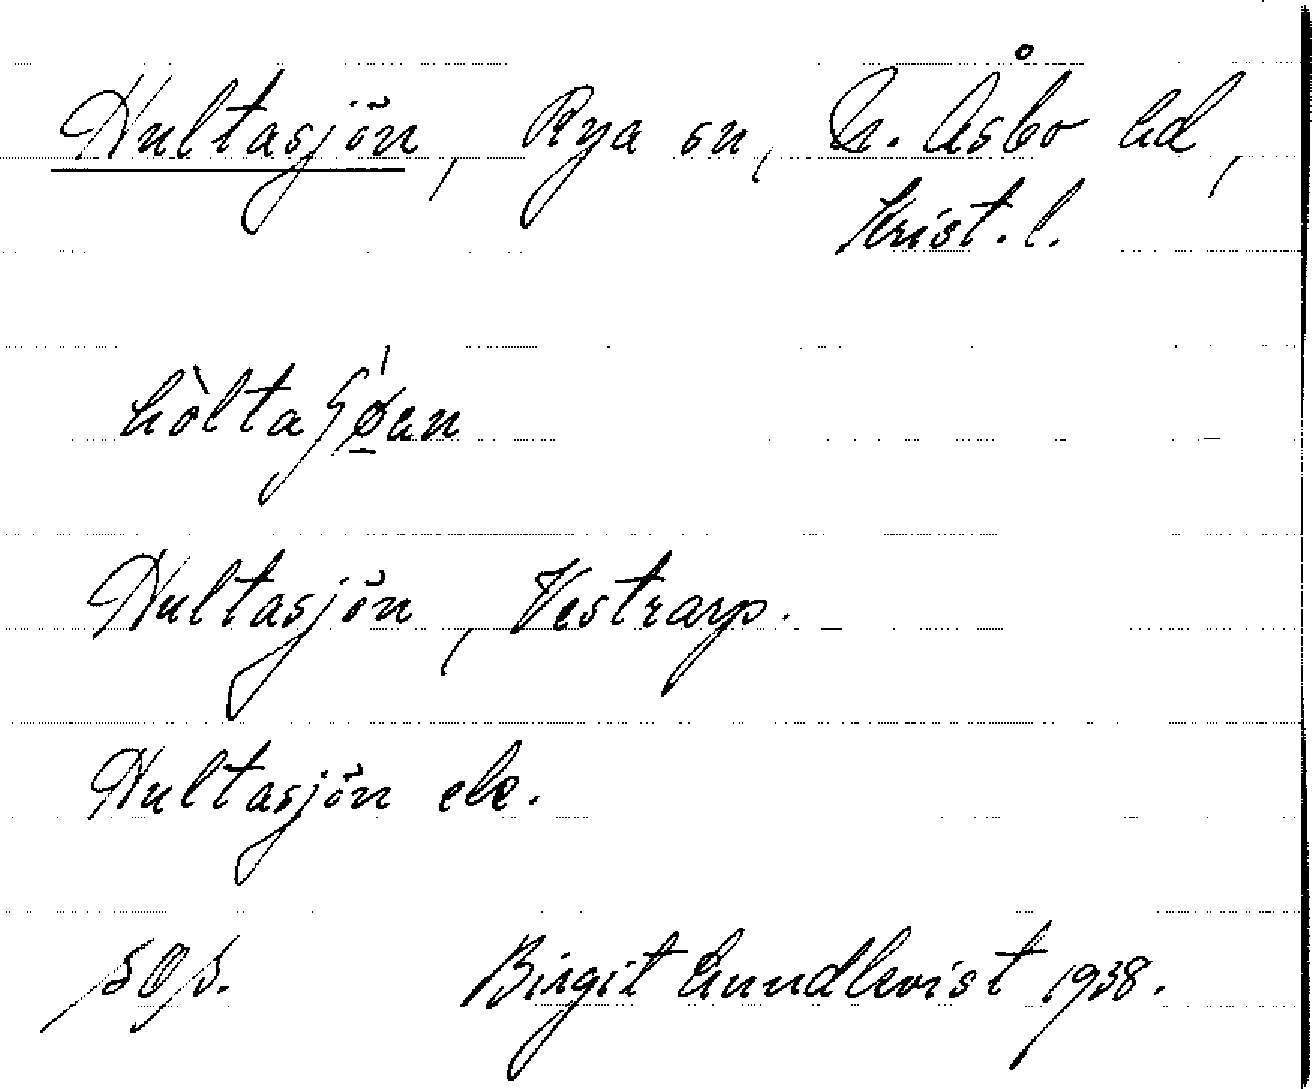 Hultasjön, Rya sn, N. Åsbo hd,
Krist. l.
hòltaʃǿ̱en
Hultasjön, Vestrarp.
Hultasjön ek.
Birgit Lundkvist 1938.